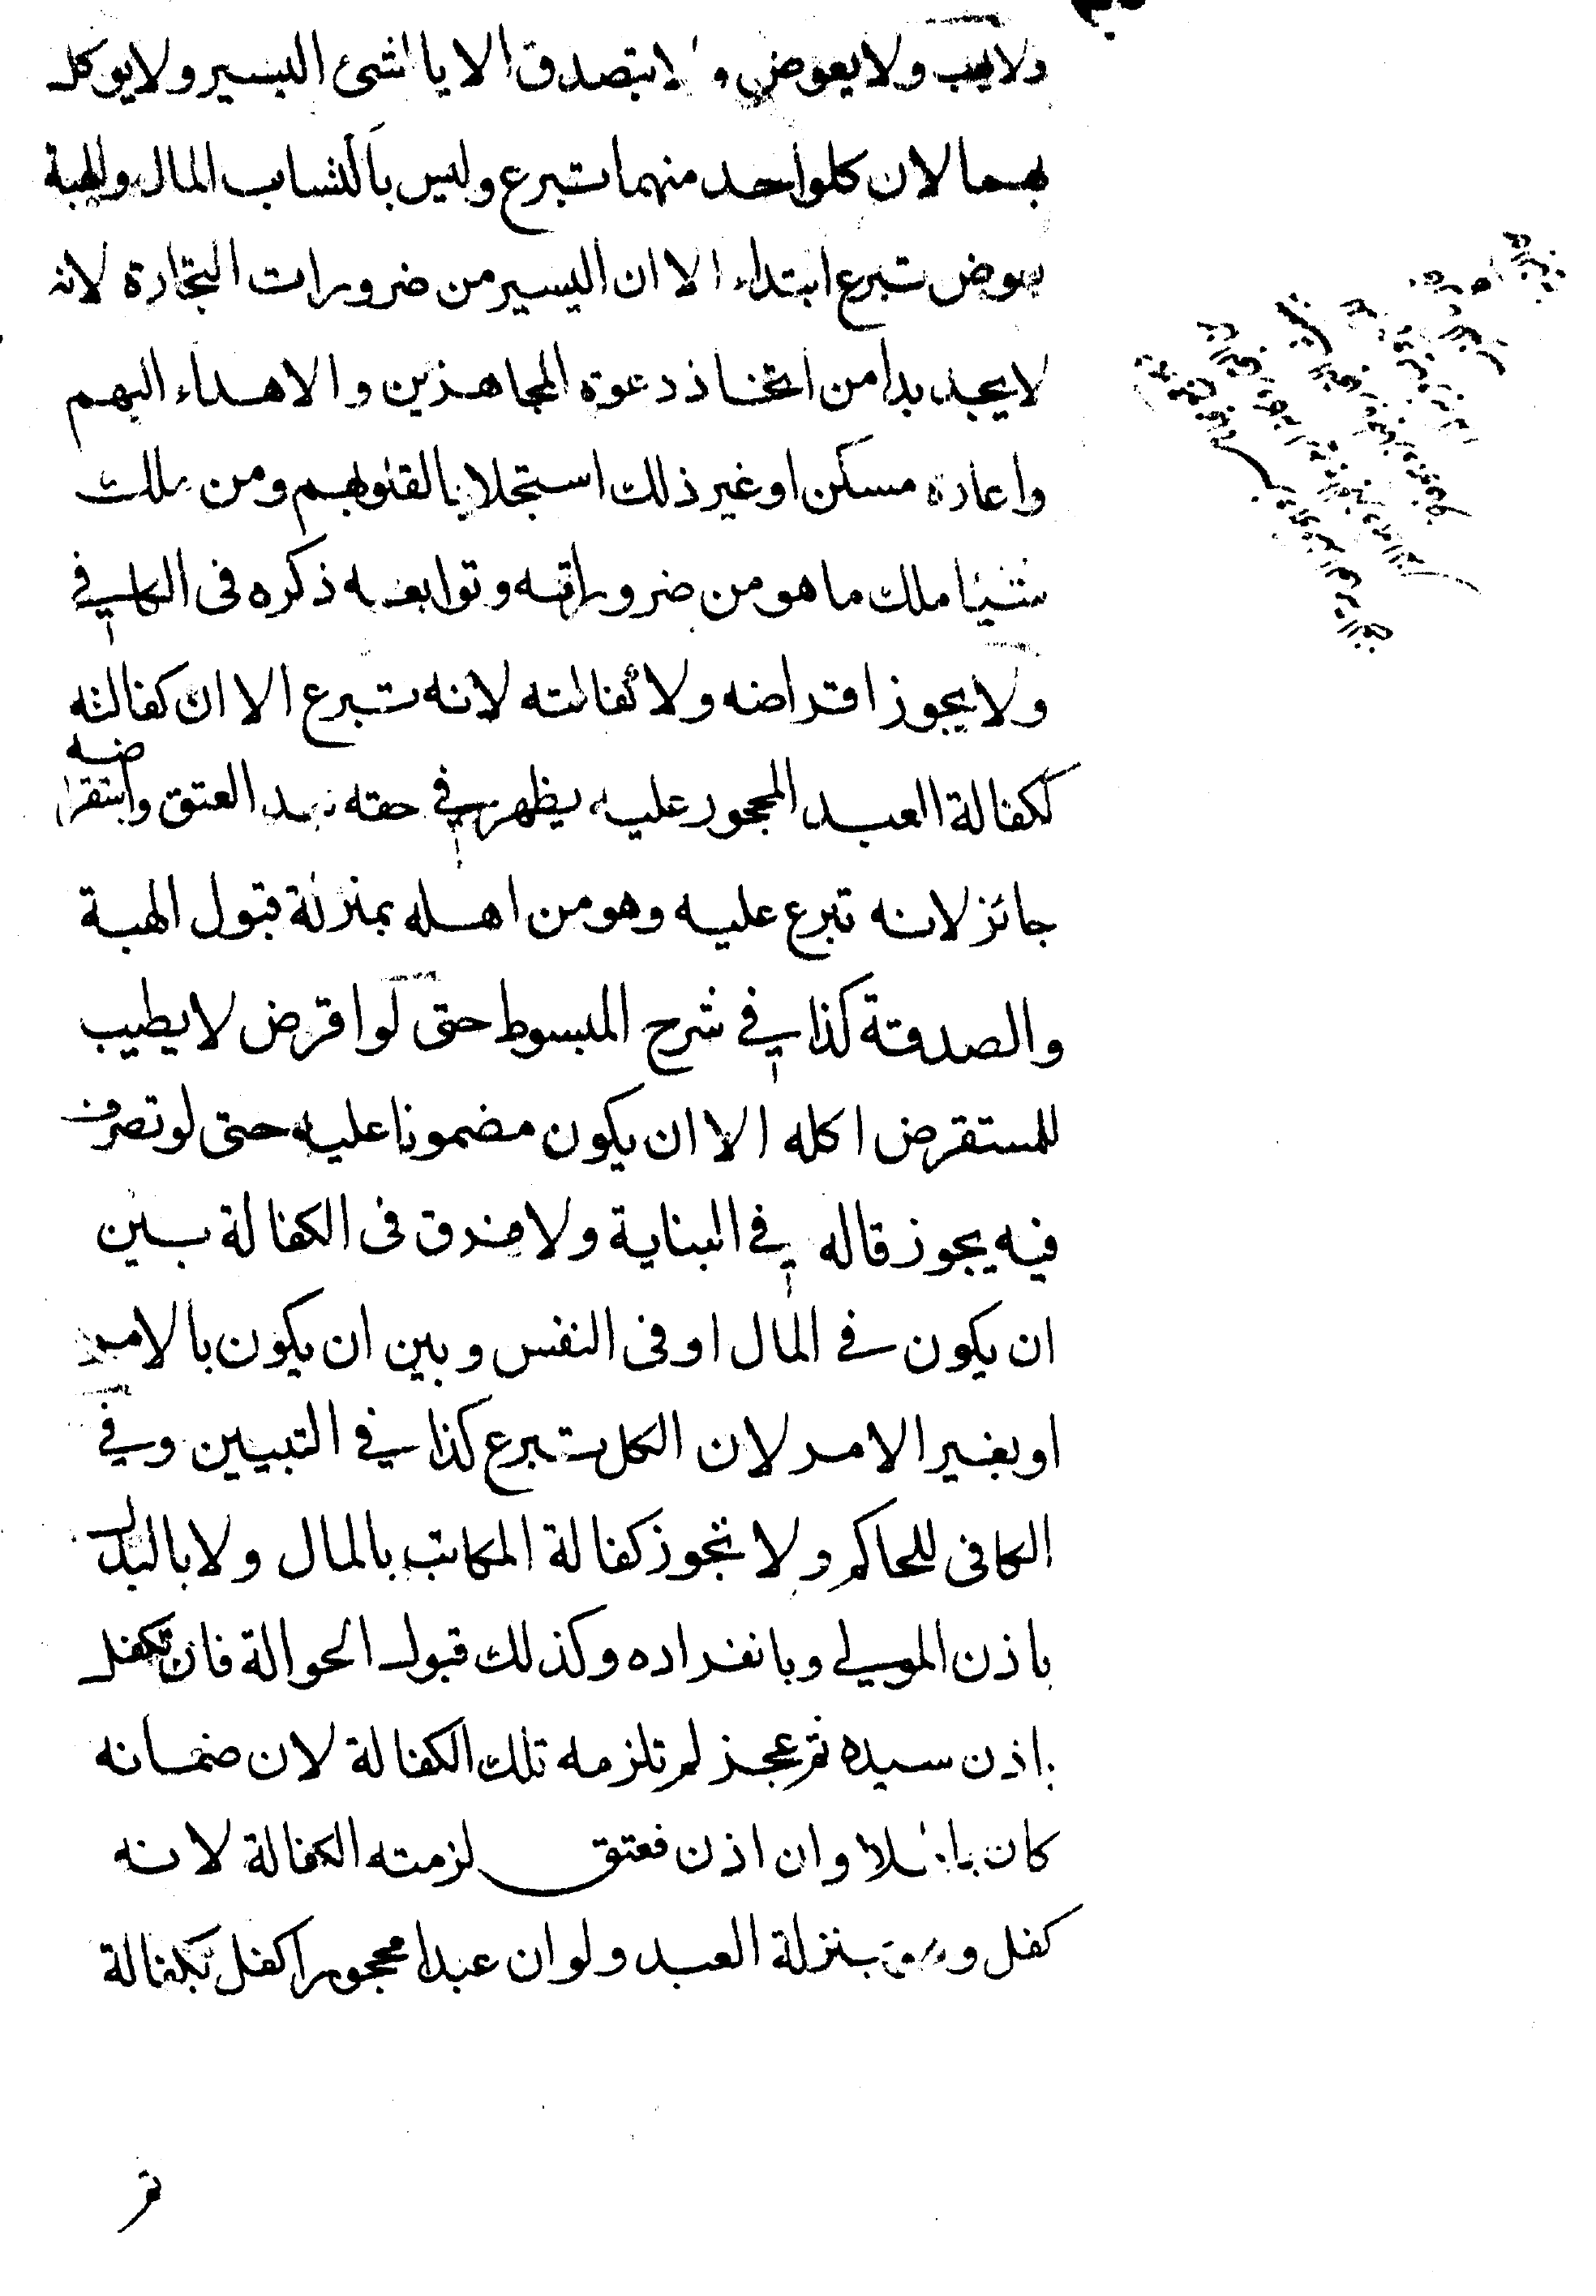 ولا يهب ولا يعوض ولا يتصدق الا بالشئ اليسير ولا يوكل
بهما لان كلواحد منهما تبرع وليس باكتساب المال والهبة
بعوض تبرع ابتداء الا ان اليسير من ضرورات التجارة لانه
لا يجد بدا من اتخاذ دعوة المجاهذين والاهداء اليهم
واعارة مسكن او غير ذلك استجلابا لقلوبهم ومن ملك
شيئا ملك ما هو من ضروراته وتوابعه ذكره فى الكافي
ولا يجوز اقراضه ولا كفالته لانه تبرع الا ان كفالته
ككفالة العبد المحجور عليه يظهر في حقه بعد العتق واستقراضه
جائز لانه تبرع عليه وهو من اهله بمنزلة قبول الهبة
والصدقة كذا في شرح المبسوط حتى لو اقرض لا يطيب
للمستقرض اكله الا ان يكون مضمونا عليه حتى لو تصرف
فيه يجوز قاله في البناية ولا فرق فى الكفالة بين
ان يكون في المال او فى النفس وبين ان يكون بالامر
او بغير الامر لان الكل تبرع كذا في التبيين وفي
الكافى للحاكم ولا تجوز كفالة المكاتب بالمال ولا بالبدل
باذن المولي وبانفراده وكذلك قبول الحوالة فان تكفل
باذن سيده ثم عجز لم تلزمه تلك الكفالة لان ضمانه
كان باطلا وان اذن فعتق لزمته الكفالة لانه
كفل وهو بمنزلة العبد ولو ان عبدا محجورا كفل بكفالة
ثم